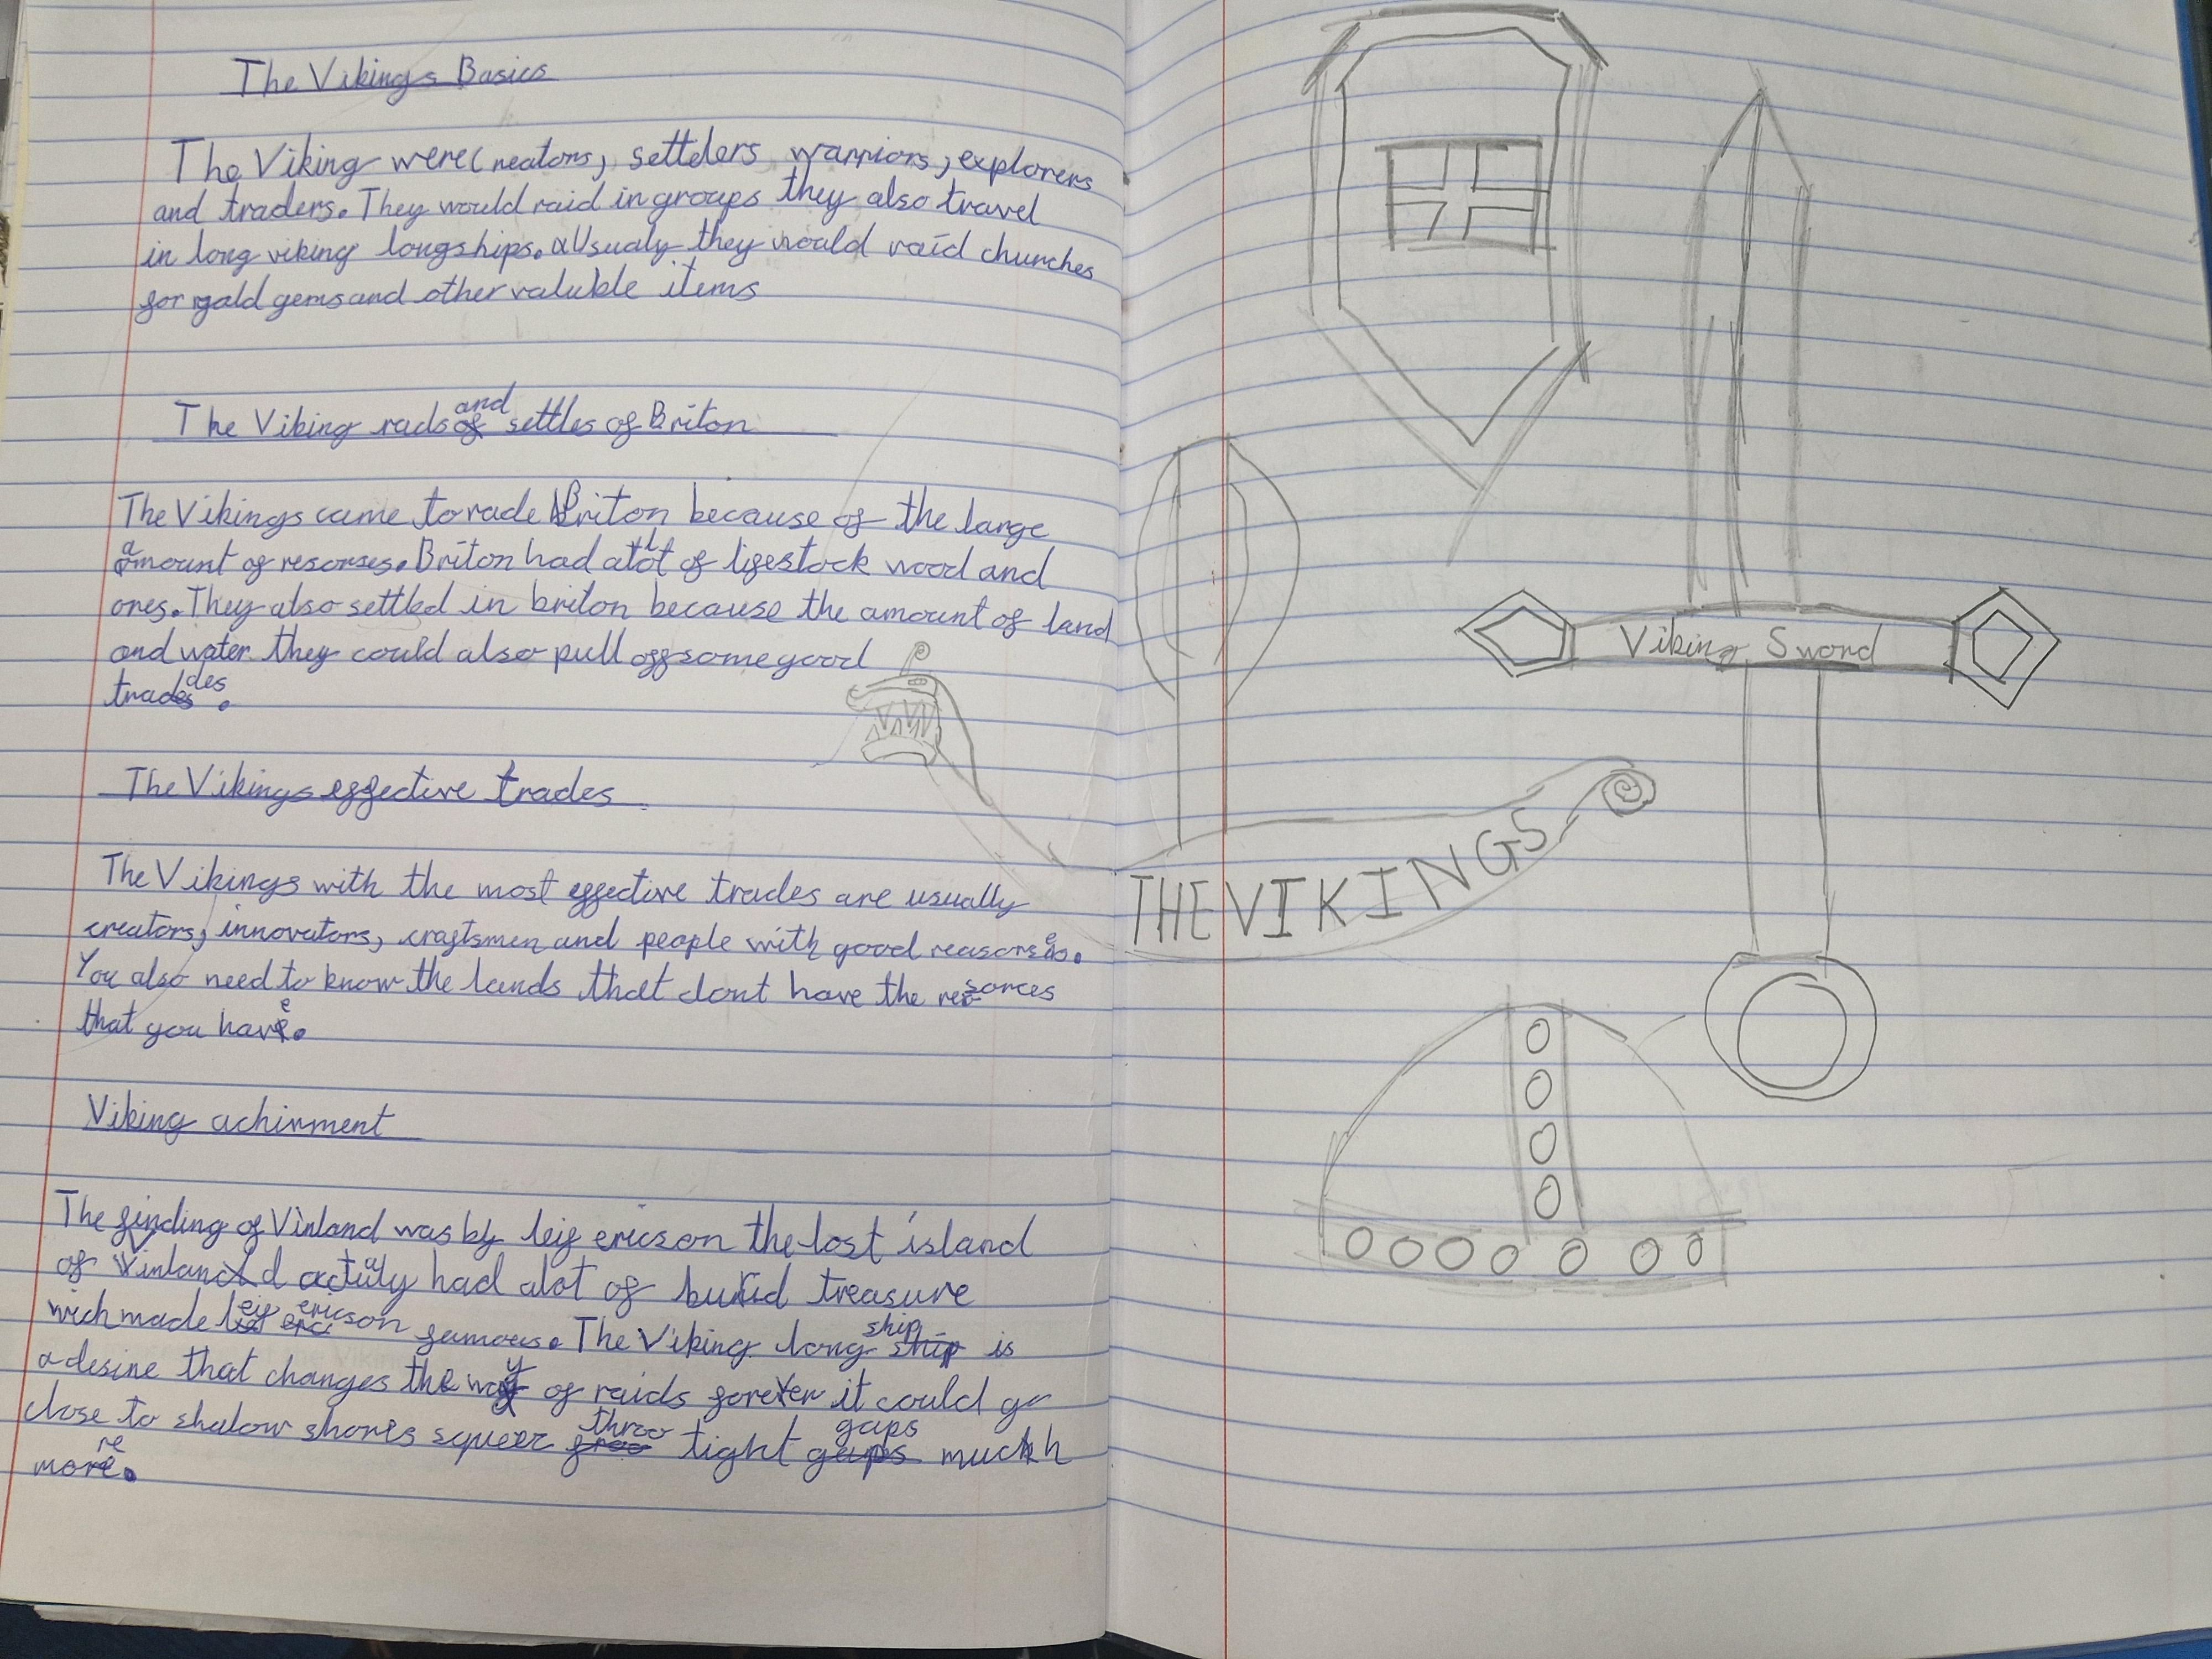 The Vikings Basics
The Viking were Creators, settelers warriors, explorers
and traders. They would raid in groups they also travel
in long viking longships. Usualy they would raid churches
for gold gems and other valuble items
The Viking rads and settles of Briton
The Vikings came to rade Briton because of the large
amount of resorses. Briton had alot of lifestock wood and
ores. They also settled in briton because the amount of land
and water they could also pull off some good
trades.
The Vikings effective trades
The Vikings with the most effective trades are usually
creators, innovators, craftsmen and people with good
You also need to know the lands that dont have the resorces
that you have.
Viking achivment
The finding of Vinland was by leif ericson the lost island
of Vinland actualy had alot of burid treasure
wich made leif ericson famous. The Viking long ship is
a desine that changes the way of raids forever it could go
close to shalow shores squeez throo tight gaps much
more.
Viking Sword
THE VIKINGS